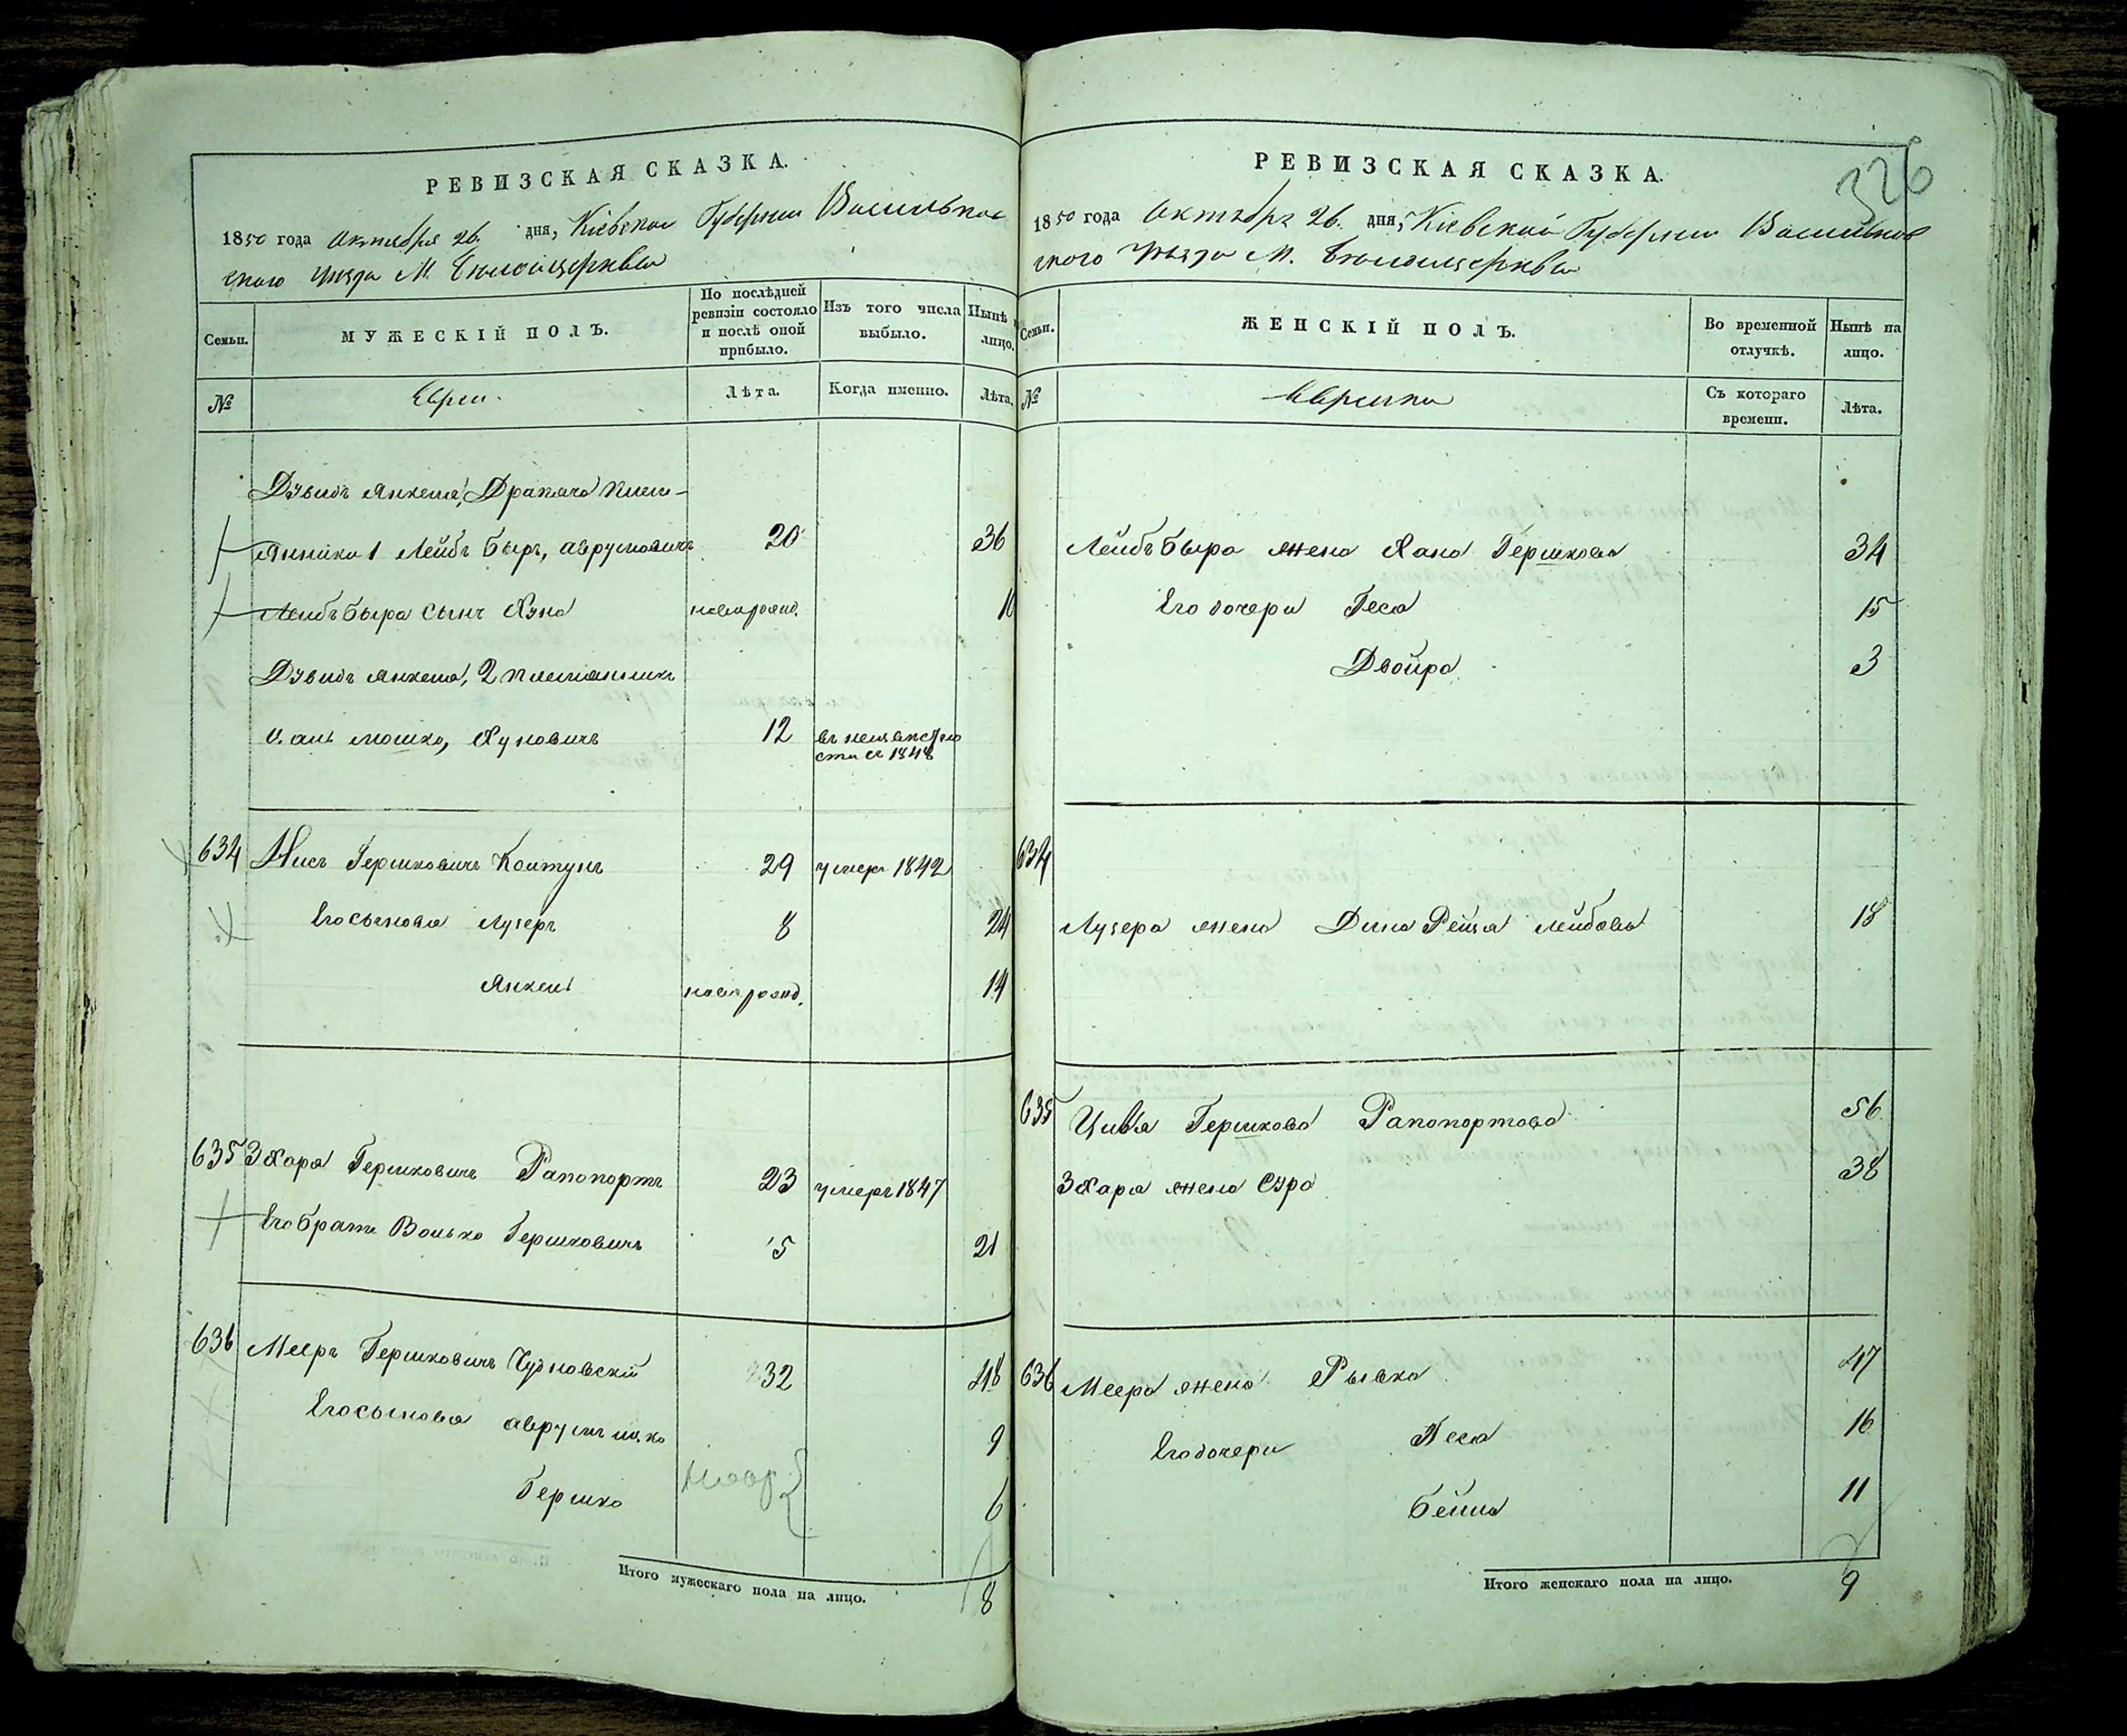 РЕВИЗСКАЯ СКАЗКА.
1850 года Октября 26. дня, Кіевской Губерніи Васильков
скаго уѣзда М. Бѣлойцеркви
Семьи.
МУЖЕСКІЙ ПОЛЪ.
По послѣдней ревизіи состояло и послѣ оной прибыло.
Изъ того числа выбыло.
Нынѣ на лицо.
№
Евреи.
Лѣта.
Когда именно.
Лѣта.
Дувидъ Янкеля, Драпача племя-
янника 1 Лейбъ Беръ, Аврумовичъ 20 36
Лейбъ Бера сынъ Хуна новорожд. 10
Дувидъ Янкеля, 2 племянникъ
Мошко, Хуновичъ 12 въ неизвѣстно
сти съ 1848
634 Нисъ Гершковичъ Колтунъ 29 умеръ 1842
Его сыновья Лузеръ 8 24
Янкель новорожд. 14
635 Зхаря Гершковичъ Рапопортъ 23 умеръ 1847
Его братъ Волько Гершковичъ 5 21
636 Мееръ Гершковичъ Чудновскій 32 48
Его сыновья Аврумъ Ицко 9
Гершко новор. 6
Итого мужескаго пола на лицо. 8
326
РЕВИЗСКАЯ СКАЗКА.
1850 года Октября 26. дня, Кіевской Губерніи Васильков
скаго уѣзда М. Бѣлойцеркви
Семьи.
ЖЕНСКІЙ ПОЛЪ.
Во временной отлучкѣ.
Нынѣ на лицо.
№
Еврейки
Съ котораго времени.
Лѣта.
Лейбъ Бера жена Хана Гершкова 34
Его дочери Геся 15
Двойра 3
634
Лузера жена Дина Рейзя Лейбова 18
635 Цивья Гершкова Рапопортова 56
Зхаря жена Сура 38
636 Меера жена Рывка 47
Его дочери Песя 16
Бейла 11
Итого женскаго пола на лицо. 9